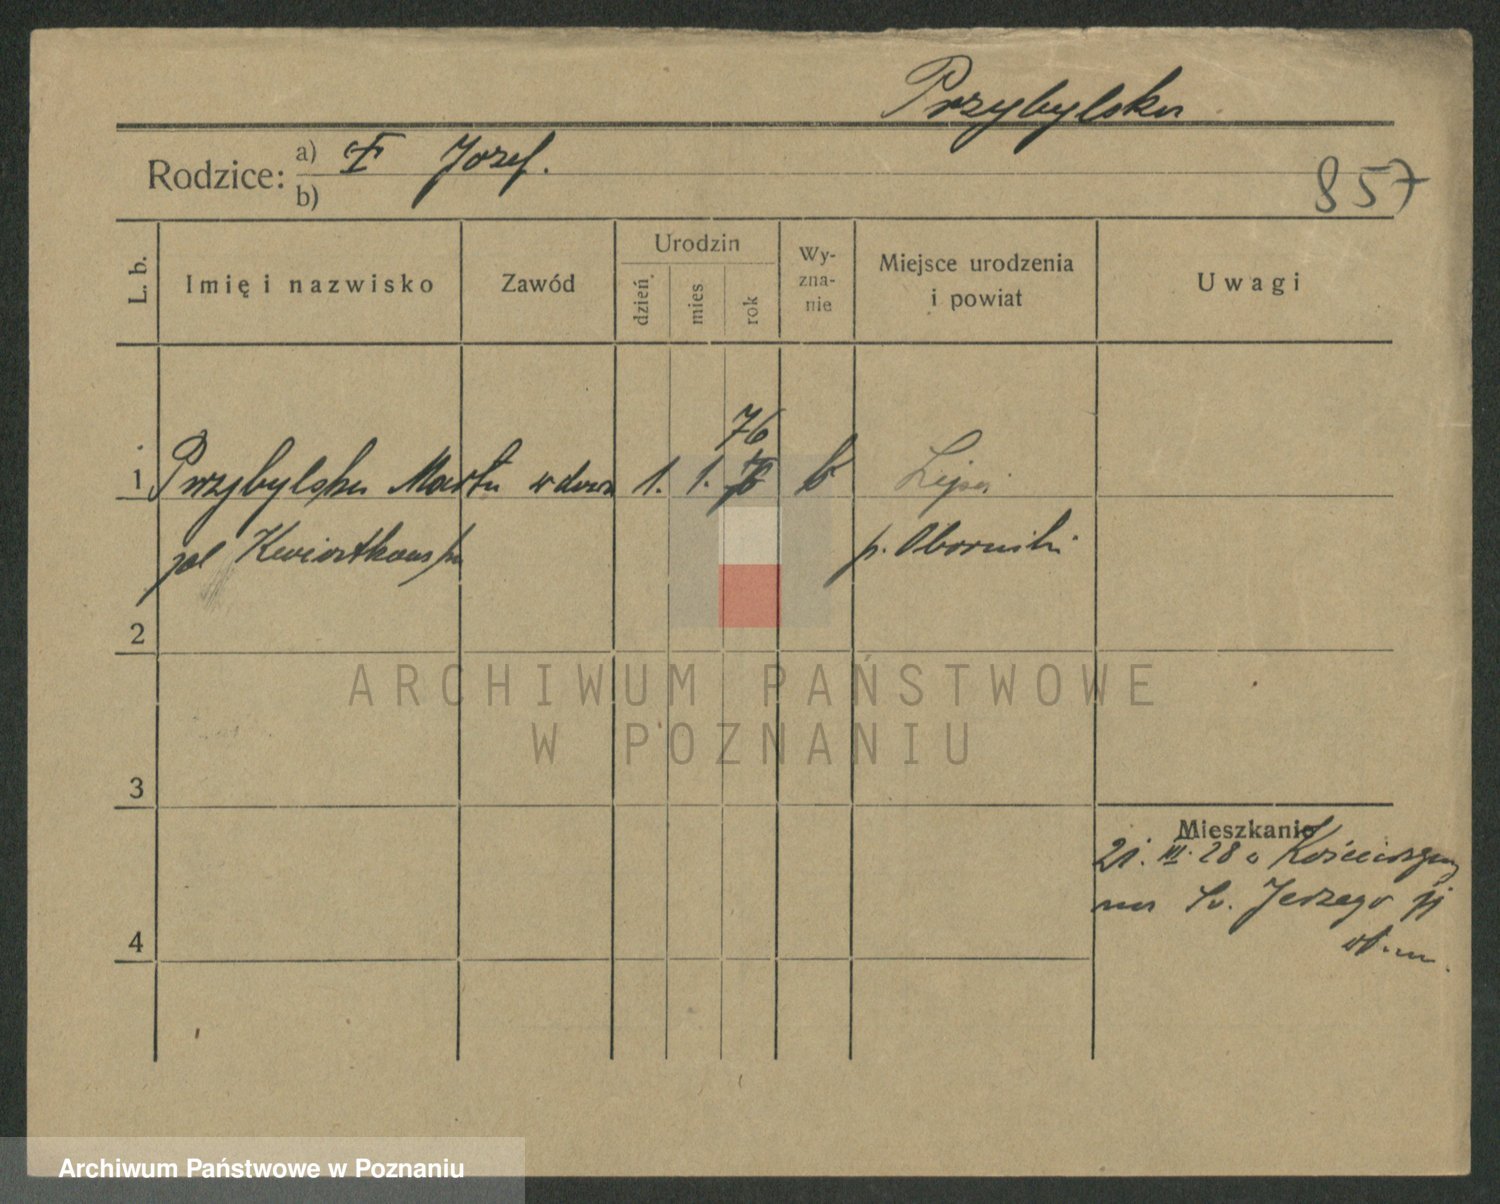 Przybylska
Rodzice: a) I Jozef.
b)
857
L. b. Imię i nazwisko Zawód Urodzin dzień mies rok Wy-zna-nie Miejsce urodzenia i powiat Uwagi
76
1 Przybylska Marta wdowa 1. 1. k
p. Oborniki
2
ARCHIWUM PAŃSTWOWE
W POZNANIU
3
Mieszkanie
21. III. 28
na Sv. Jerzego
4
Archiwum Państwowe w Poznaniu